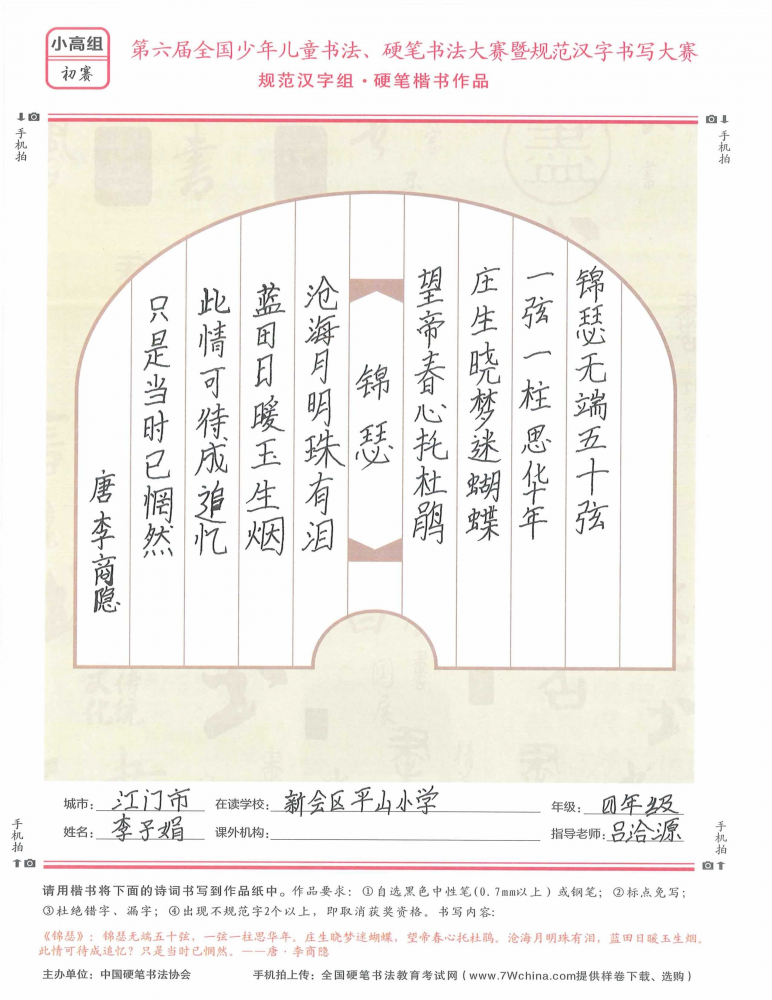 小高组
初赛
第六届全国少年儿童书法、硬笔书法大赛暨规范汉字书写大赛
规范汉字组·硬笔楷书作品
手机拍
手机拍
锦瑟无端五十弦
一弦一柱思华年
庄生晓梦迷蝴蝶
望帝春心托杜鹃
锦瑟
沧海月明珠有泪
蓝田日暖玉生烟
此情可待成追忆
只是当时已惘然
唐李商隐
城市：江门市 在读学校：新会区平山小学 年级：四年级
姓名：李子娟 课外机构： 指导老师：吕洽源
手机拍
手机拍
请用楷书将下面的诗词书写到作品纸中。作品要求：①自选黑色中性笔(0.7mm以上)或钢笔；②标点免写；
③杜绝错字、漏字；④出现不规范字2个以上，即取消获奖资格。书写内容：
《锦瑟》：锦瑟无端五十弦，一弦一柱思华年。庄生晓梦迷蝴蝶，望帝春心托杜鹃。沧海月明珠有泪，蓝田日暖玉生烟。
此情可待成追忆？只是当时已惘然。——唐·李商隐
主办单位：中国硬笔书法协会 手机拍上传：全国硬笔书法教育考试网（www.7Wchina.com提供样卷下载、选购）